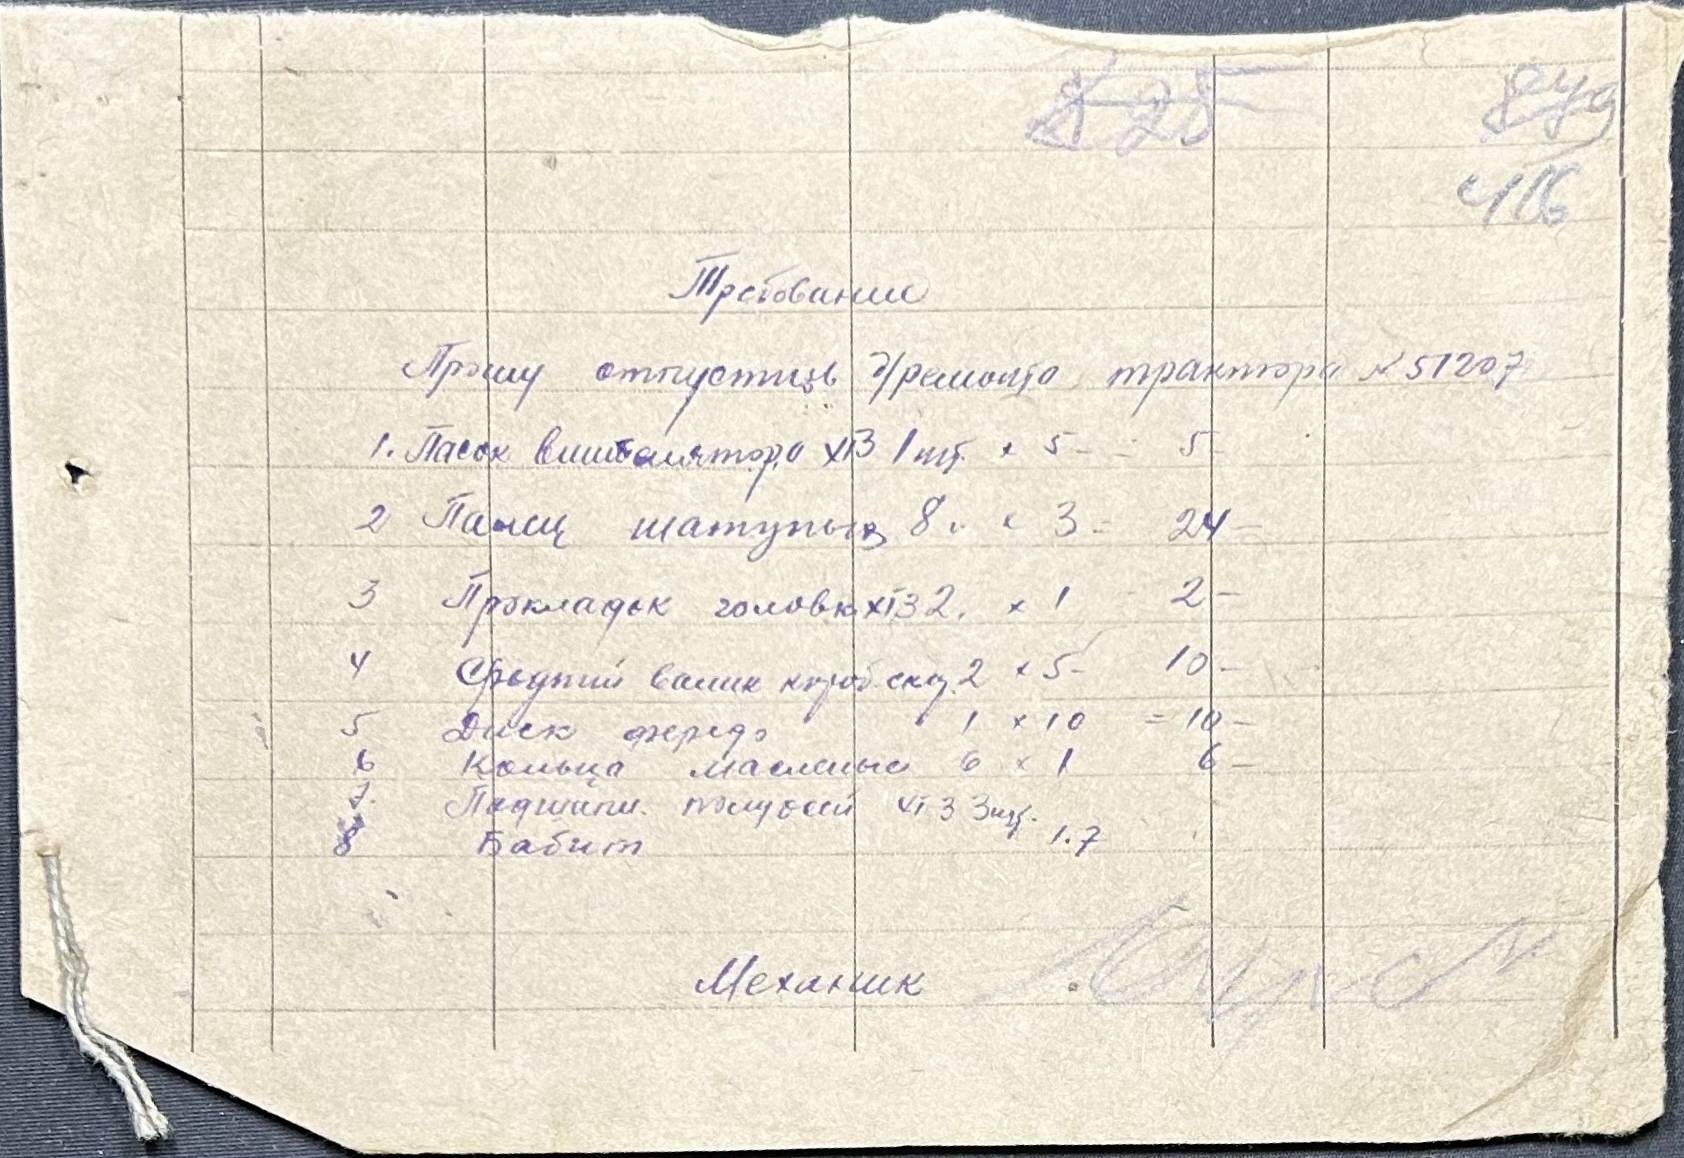 416
Требование
Прошу отпустить д/ремонта трактора № 51207
1. Пасок вентилятора ХТЗ 1 шт. х 5 - 5 -
2 8 " х 3 = 24 -
3 Прокладок головк ХТЗ 2. х 1 2 -
4 Средний валик короб. скор. 2 х 5 - 10 -
5 Диск 1 х 10 = 10 -
6 Кольца масленые 6 х 1 6 -
7. Подшипн. полуосей ХТЗ 3 шт.
8 Бабит 1.7
Механик